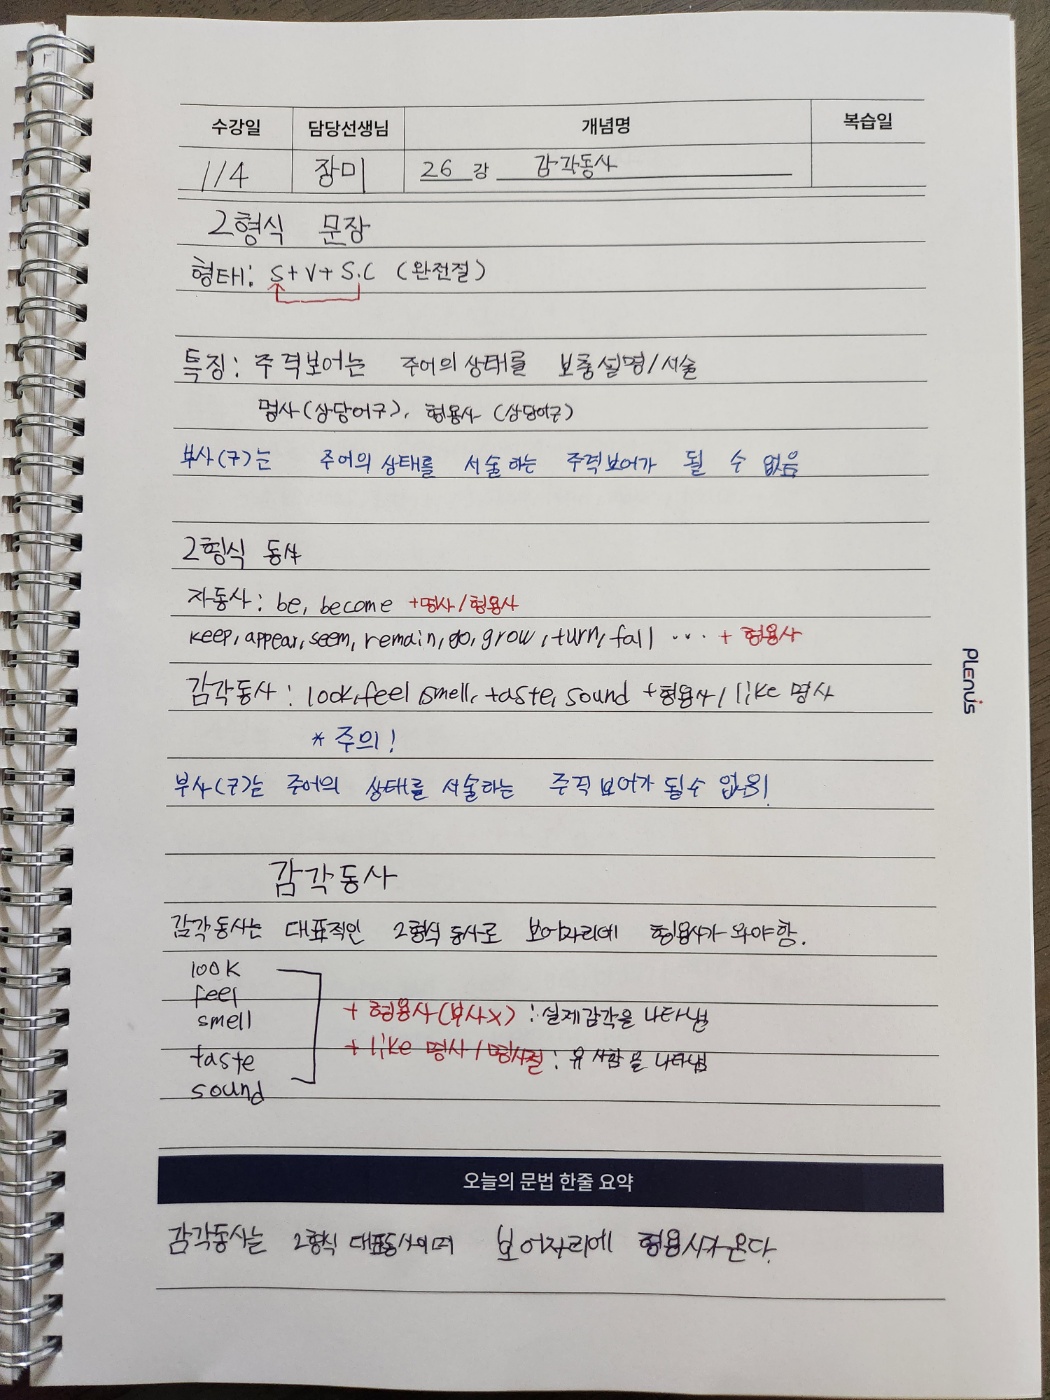 수강일 담당선생님 개념명 복습일
1/4 장미 26 강 감각동사
2형식 문장
형태: S+V+S.C (완전절)
특징: 주격보어는 주어의 상태를 보충설명/서술
명사(상당어구), 형용사 (상당어구)
부사(구)는 주어의 상태를 서술하는 주격보어가 될 수 없음
2형식 동사
자동사: be, become +명사/형용사
keep, appear, seem, remain, go, grow, turn, fall ... + 형용사
감각동사: look, feel, smell, taste, sound +형용사/like 명사
* 주의!
부사(구)는 주어의 상태를 서술하는 주격보어가 될 수 없음!
PLENUS
감각동사
감각동사는 대표적인 2형식 동사로 보어자리에 형용사가 와야함.
look
feel
smell
+ 형용사(부사X) : 실제감각을 나타냄
+ like 명사/명사절 : 유사함을 나타냄
taste
sound
오늘의 문법 한줄 요약
감각동사는 2형식 대표동사이며 보어자리에 형용사가 온다.